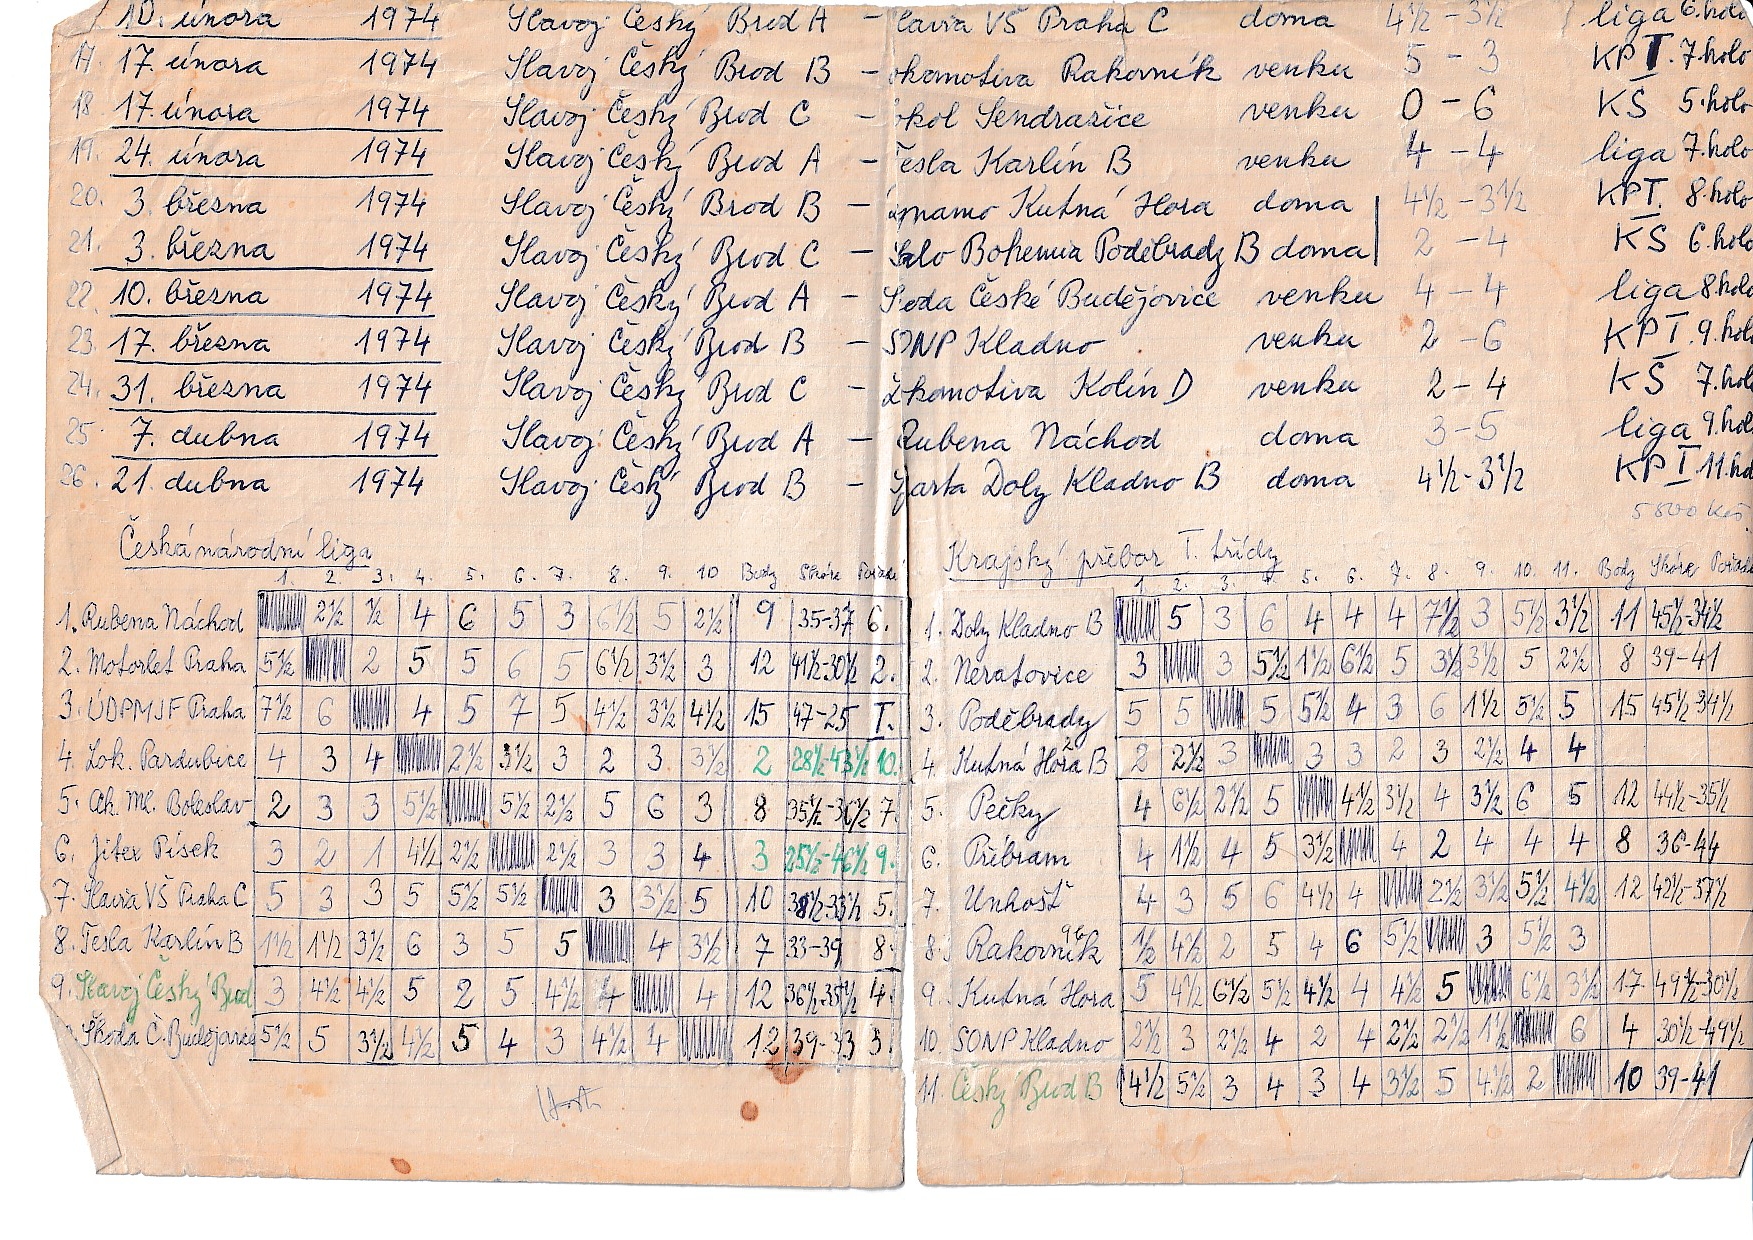 10. února 1974 Slavoj Český Brod A - lavia VŠ Praha C doma 4½ - 3½ liga 6. kolo
17. 17. února 1974 Slavoj Český Brod B - okomotiva Rakovník venku 5 - 3 KP I. 7. kolo
18. 17. února 1974 Slavoj Český Brod C - okol Sendražice venku 0 - 6 KS 5. kolo
19. 24. února 1974 Slavoj Český Brod A - Tesla Karlín B venku 4 - 4 liga 7. kolo
20. 3. března 1974 Slavoj Český Brod B - ynamo Kutná Hora doma 4½ - 3½ KP I. 8. kolo
21. 3. března 1974 Slavoj Český Brod C - Bohemia Poděbrady B doma 2 - 4 KS 6. kolo
22. 10. března 1974 Slavoj Český Brod A - Škoda České Budějovice venku 4 - 4 liga 8. kolo
23. 17. března 1974 Slavoj Český Brod B - SONP Kladno venku 2 - 6 KP I. 9. kolo
24. 31. března 1974 Slavoj Český Brod C - Lokomotiva Kolín D venku 2 - 4 KŠ 7. kolo
25. 7. dubna 1974 Slavoj Český Brod A - Rubena Náchod doma 3 - 5 liga 9. kolo
26. 21. dubna 1974 Slavoj Český Brod B - Sparta Doly Kladno B doma 4½ - 3½ KP I. 11. kol
5800 Kčs
Česká národní liga
1. 2. 3. 4. 5. 6. 7. 8. 9. 10 Body Skóre Pořadí
1. Rubena Náchod 2½ ½ 4 6 5 3 6½ 5 2½ 9 35-37 6.
2. Motorlet Praha 5½ 2 5 5 6 5 6½ 3½ 3 12 41½-30½ 2.
3. ÚDPMJF Praha 7½ 6 4 5 7 5 4½ 3½ 4½ 15 47-25 I.
4. Lok. Pardubice 4 3 4 2½ 3½ 3 2 3 3½ 2 28½-43½ 10.
5. Ml. Boleslav 2 3 3 5½ 5½ 2½ 5 6 3 8 35½-36½ 7.
6. Jitex Písek 3 2 1 4½ 2½ 2½ 3 3 4 3 25½-46½ 9.
7. Slavia VŠ Praha C 5 3 3 5 5½ 5½ 3 3½ 5 10 38½-33½ 5.
8. Tesla Karlín B 1½ 1½ 3½ 6 3 5 5 4 3½ 7 33-39 8.
9. Slavoj Český Brod 3 4½ 4½ 5 2 5 4½ 4 4 12 36½-35½ 4.
Škoda Č. Budějovice 5½ 5 3½ 4½ 5 4 3 4½ 4 12 39-33 3.
Krajský přebor I. třídy
1 2. 3. 4. 5. 6. 7. 8. 9. 10. 11. Body Skóre Pořadí
1. Doly Kladno B 5 3 6 4 4 4 7½ 3 5½ 3½ 11 45½-34½
2. Neratovice 3 3 5½ 1½ 6½ 5 3½ 3½ 5 2½ 8 39-41
3. Poděbrady 5 5 5 5½ 4 3 6 1½ 5½ 5 15 45½-34½
4. Kutná Hora B 2 2½ 3 3 3 2 3 2½ 4 4
5. Pečky 4 6½ 2½ 5 4½ 3½ 4 3½ 6 5 12 44½-35½
6. Příbram 4 1½ 4 5 3½ 4 2 4 4 4 8 36-44
7. Unhošť 4 3 5 6 4½ 4 2½ 3½ 5½ 4½ 12 42½-37½
8. Rakovník ½ 4½ 2 5 4 6 5½ 3 5½ 3
9. Kutná Hora 5 4½ 6½ 5½ 4½ 4 4½ 5 6½ 3½ 17 49½-30½
10. SONP Kladno 2½ 3 2½ 4 2 4 2½ 2½ 1½ 6 4 30½-49½
11. Český Brod B 4½ 5½ 3 4 3 4 3½ 5 4½ 2 10 39-41